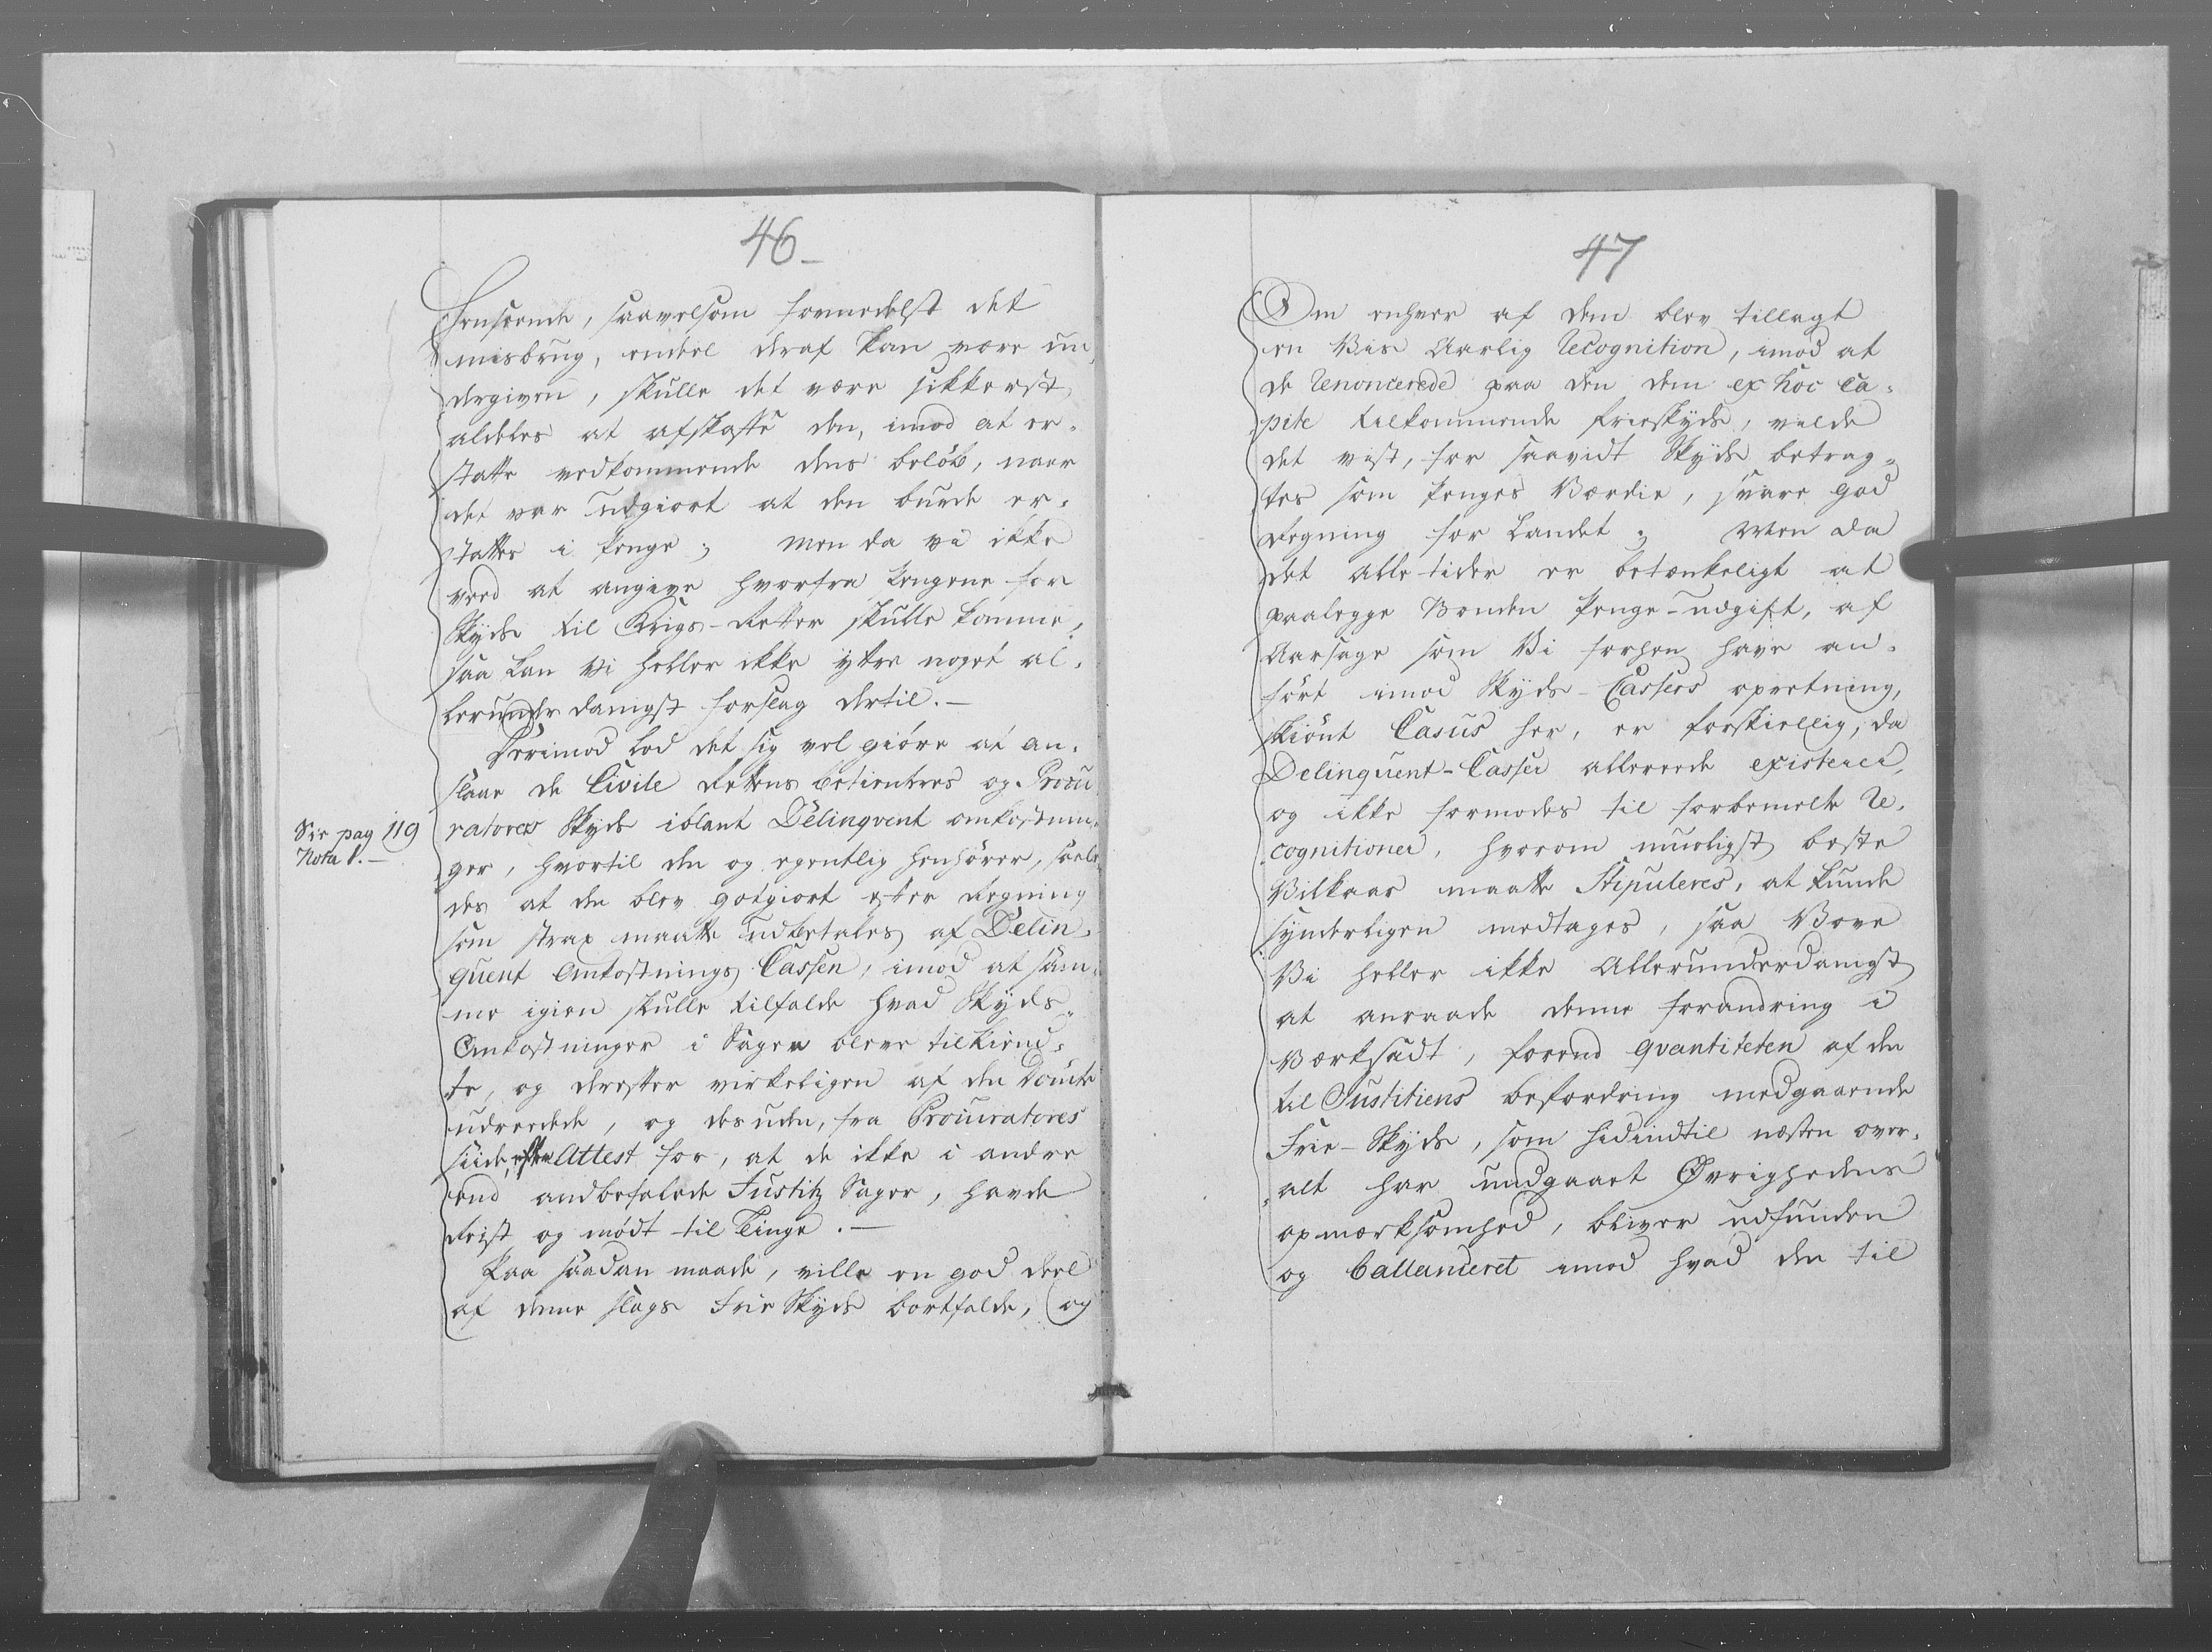 46
Henseende, saavelsom formedelst det
misbrug, endeel deraf kan være un¬
dergiven, skulle det være sikkerst,
aldeles at afskaffe den, imod at er¬
statte vedkommende dens beløb, naar
det var Udgiort at den burde er¬
stattes i Penge; Men da vi ikke
veed at angive hvorfra Pengene for
Skyds til Krigs-Retter skulle komme,
saa kan Vi heller ikke yttre noget al¬
lerunderdanigst forslag dertil.—
Derimod lod det sig vel giøre at an¬
slaae de Civile Rettens betienteres og Procu
ratorers Skyds iblant Delinqvent omkostnin¬
ger, hvortil den og egentlig henhører, saale
des at den blev gotgiort efter Regning
som strax maatte udbetales af Delin¬
quent Omkostnings Cassen, imod at sam¬
me igien skulle tilfalde hvad Skyds¬
Omkostninger i Sagen bleve tilkiend¬
te, og derefter virkeligen af den Dømte
udreedede, og desuden, fra Procuratores
siide, efter Attest for, at de ikke i andre
end andbefalede Justitz Sager, havde
Reist og mødt til Tinge.—
Paa saadan maade, ville en god deel
af denne slags Frie Skyds bortfalde, og
Sie pag 119
Nota 1.—
47
Om enhver af dem blev tillagt
en Vis Aarlig Recognition, imod at
de Renoncerede paa den dem ex hoc Ca¬
pite tilkommende Frieskyds, vilde
det vist, for saavidt Skyds betrag¬
tes som Penges Værdie, svare god
Regning for Landet; Men da
det alle tider er betænkeligt at
paalegge Bonden Penge-Udgift, af
Aarsage som Vi forhen have an¬
ført imod Skyds-Cassers oprettning,
skiønt Casus her, er forskiellig, da
Delinquent-Casser allereede existerer,
og ikke formodes til forbemelte Re¬
cognitioner, hvorom mueligst beste
Vilkaar maatte Stipuleres, at kunde
synderligen medtages, saa Vove
Vi heller ikke Allerunderdanigst
at anraade denne forandring i
Værksadt, førend Qvantiteten af den
til Justitiens befordring medgaaende
Frie-Skyds, som hidindtil næsten over¬
alt har undgaaet Øvrighedens
opmærksomhed, bliver udfunden
og Ballanceret imod hvad den til